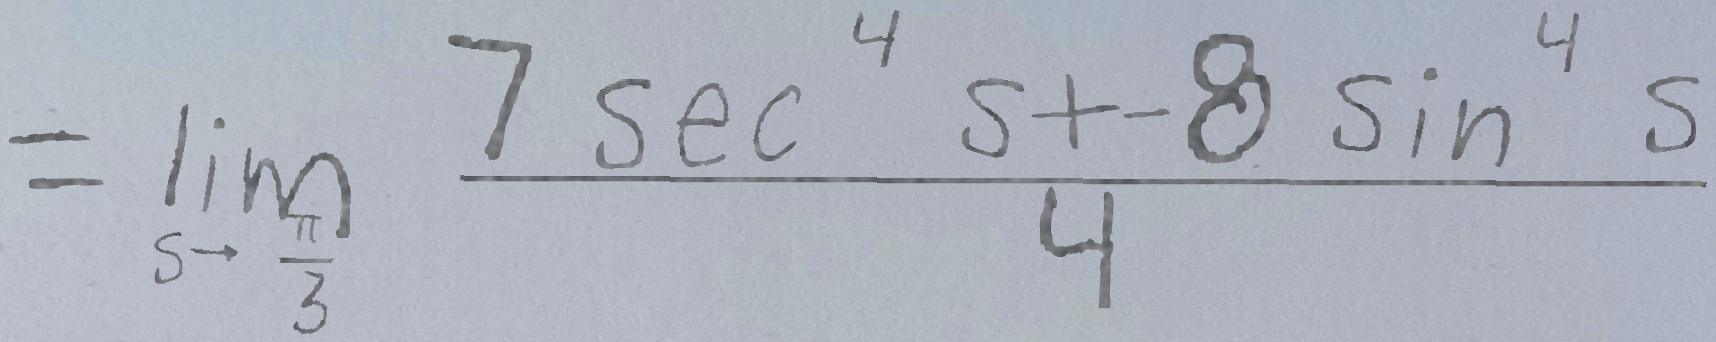 = \lim_{s \to \frac{\pi}{3}} \frac{7 \sec^4 s + -8 \sin^4 s}{4}